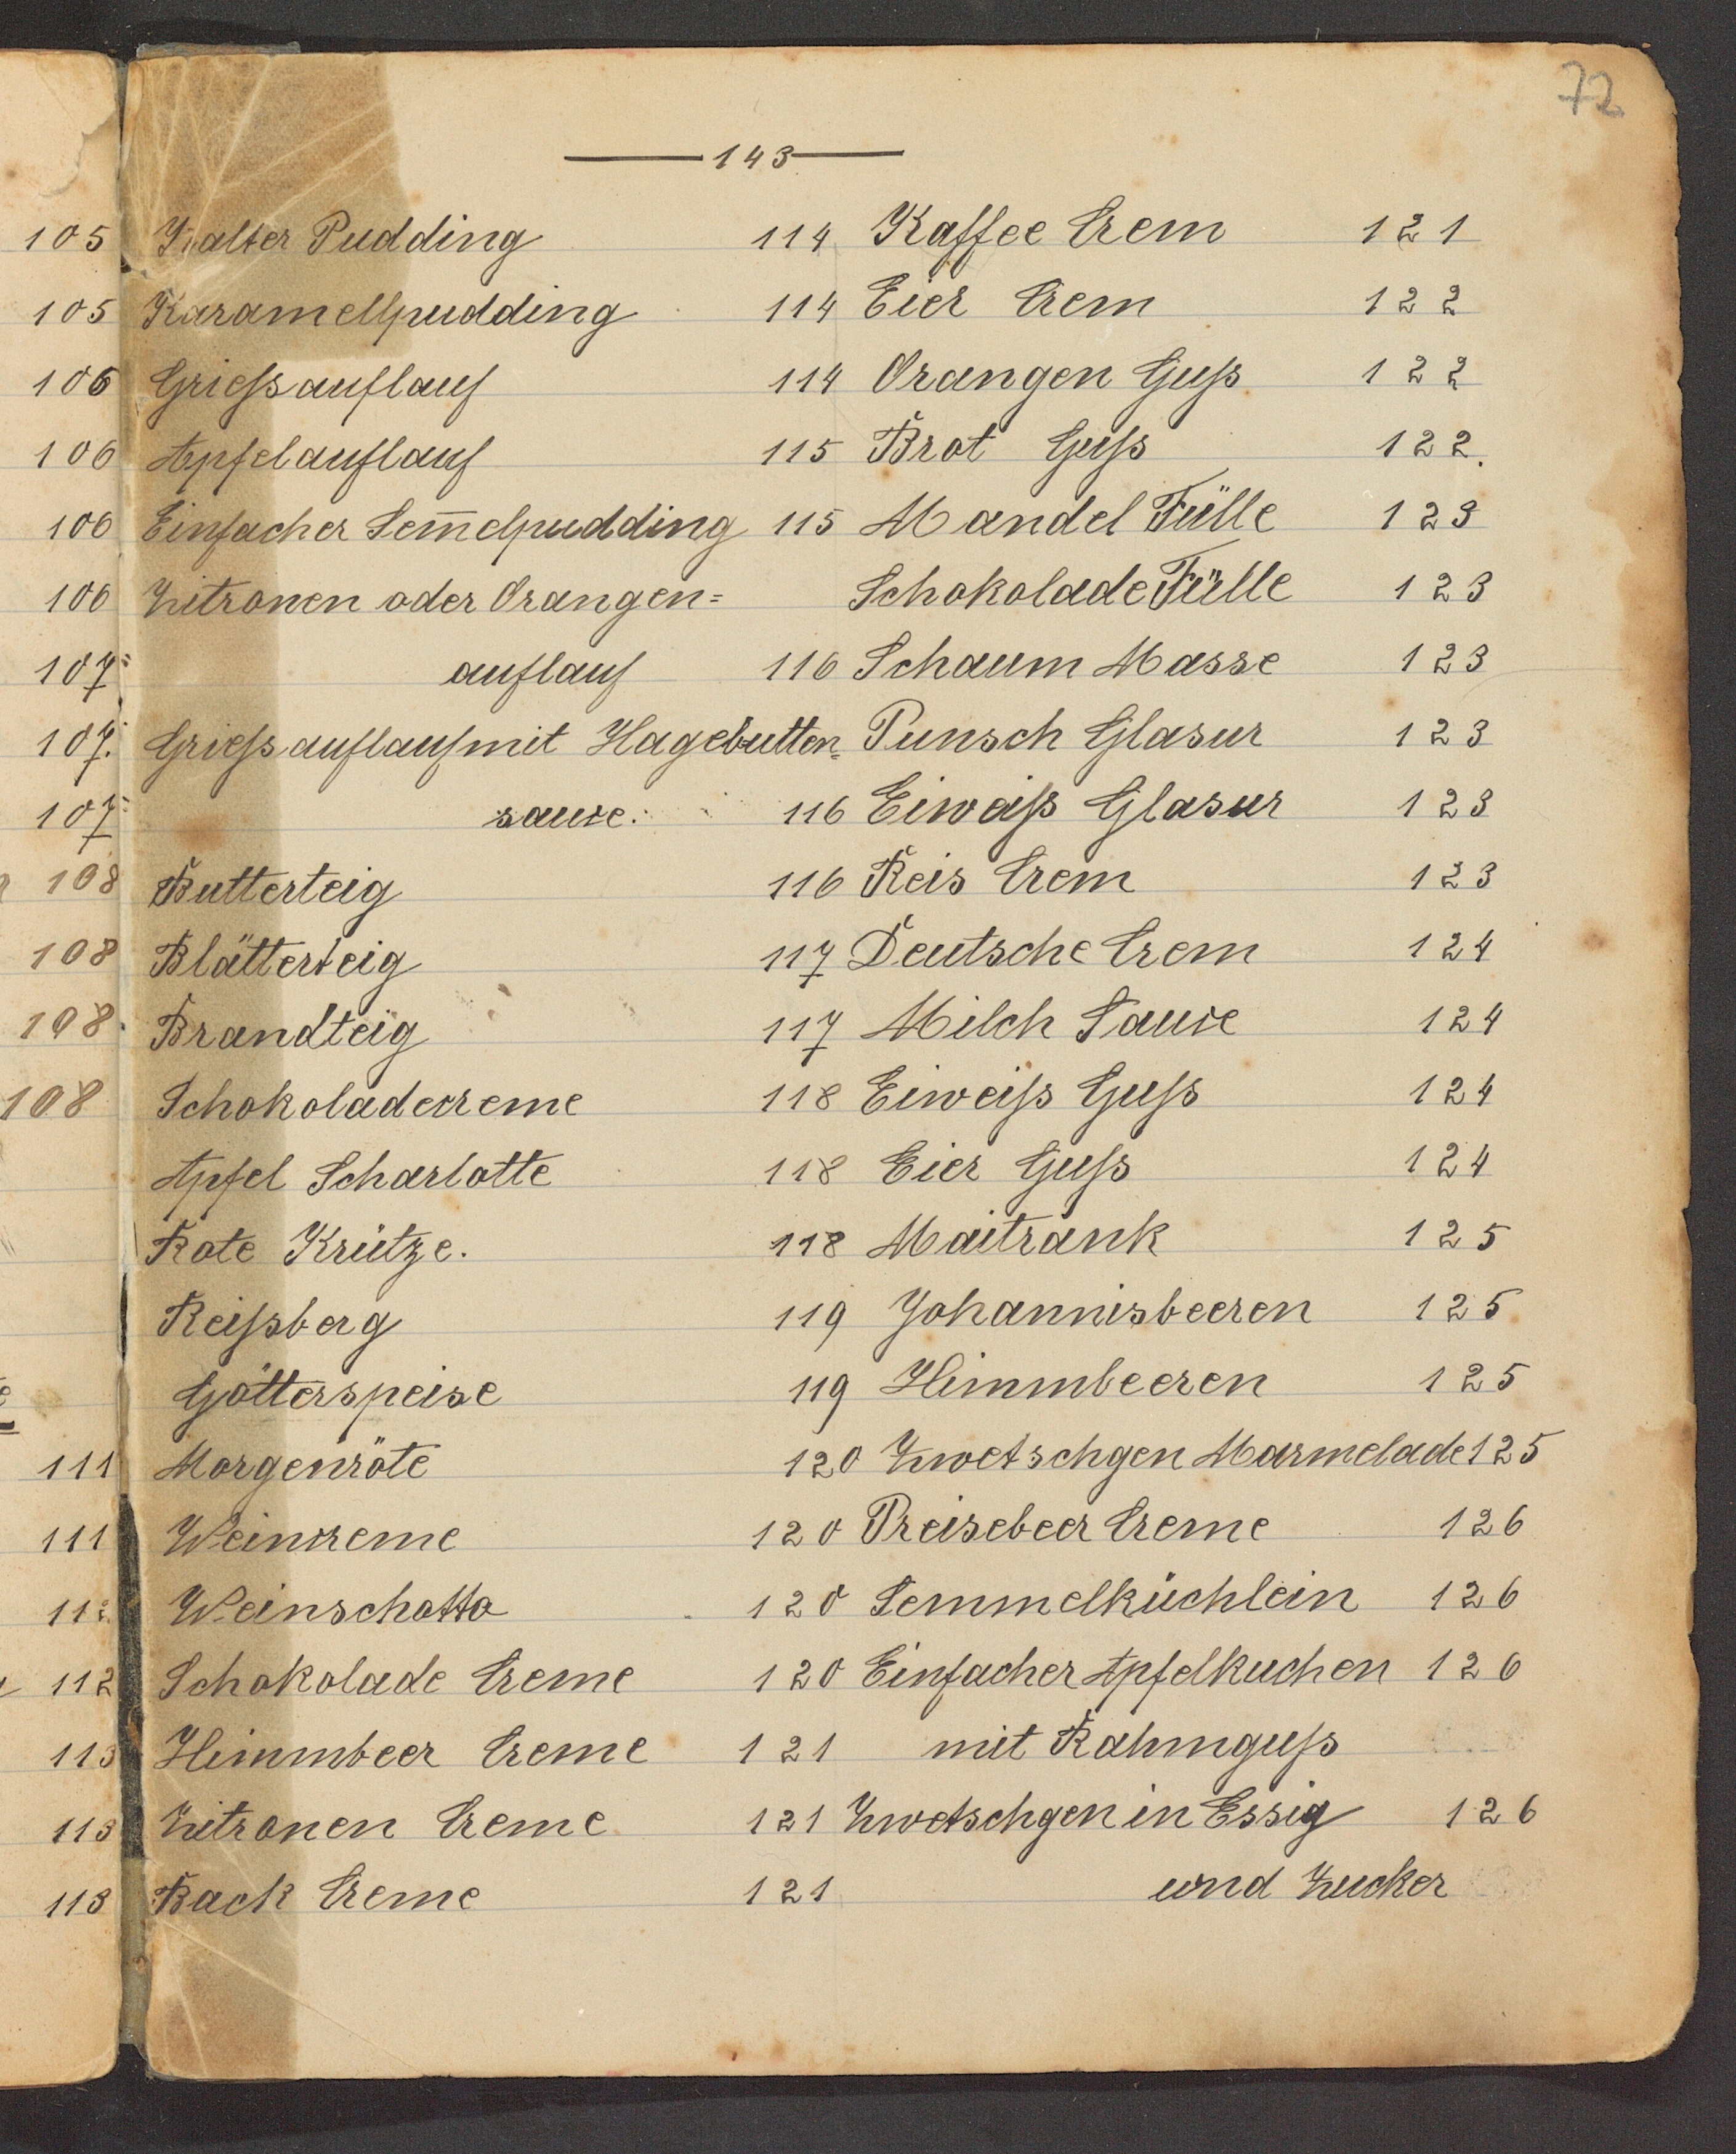 72
143
105
105
106
106
106
106
107
107.
107
108
108
108.
108
111
111
112
112
113
113
113
Kalter Pudding 114
Karamellpudding 114
Grießauflauf 114
Apfelauflauf 115
Einfacher Sem̅elpudding 115
Zitronen oder Orangen=
auflauf 116
Grießauflauf mit Hagebutten=
sauce. 116
Butterteig 116
Blätterteig 117
Brandteig 117
Schokoladecreme 118
Apfel Scharlotte 118
Rote Krütze. 118
Reißberg 119
Götterspeise 119
Morgenröte 120
Weincreme 120
Weinschotto 120
Schokolade Creme 120
Himmbeer Creme 121
Zitronen Creme 121
Back Creme 121
Kaffee Crem 121
Eier Crem 122
Orangen Guß 122
Brot Guß 122.
Mandel Fülle 123
Schokolade Fülle 123
Schaum Masse 123
Punsch Glasur 123
Eiweiß Glasur 123
Reis Crem 123
Deutsche Crem 124
Milch Sauce 124
Eiweiß Guß 124
Eier Guß 124
Maitrank 125
Johannisbeeren 125
Himmbeeren 125
Zwetschgen Marmelade 125
Preisebeer Creme 126
Semmelküchlein 126
Einfacher Apfelkuchen 126
mit Rahmguß
Zwetschgen in Essig 126
und Zucker